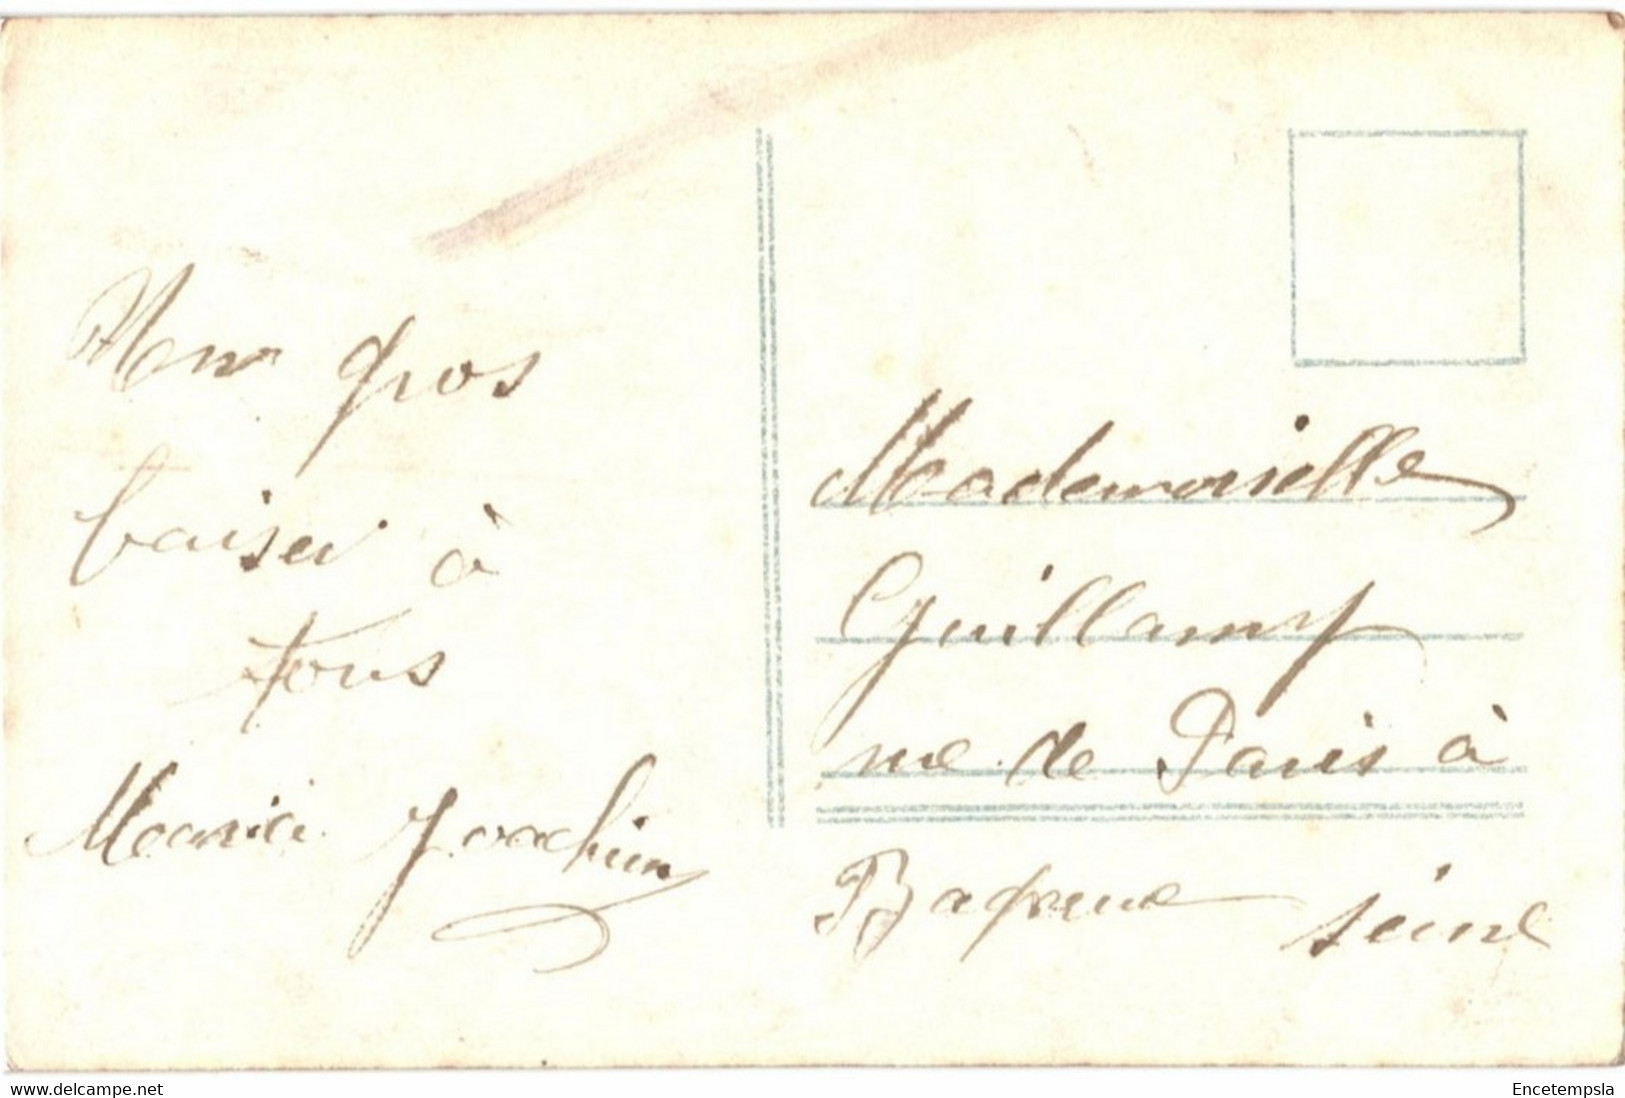 Mon gros
baiser à
tous
Maurice Joachim
Mademoiselle
Guillamy
rue de Paris à
Bagneux
Seine
www.delcampe.net
Encetempsla